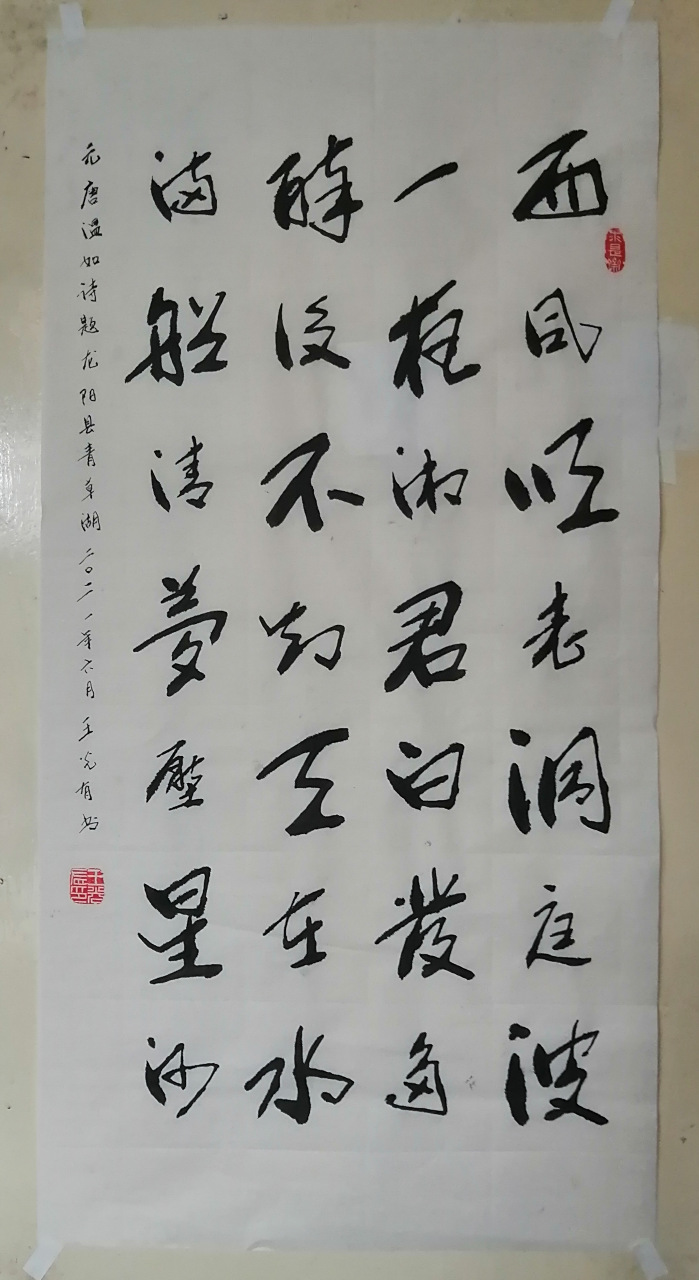 西风吹老洞庭波
一夜湘君白發多
醉後不知天在水
滿船清夢壓星河
元唐温如诗题龙阳县青草湖二〇二一年六月王光有书